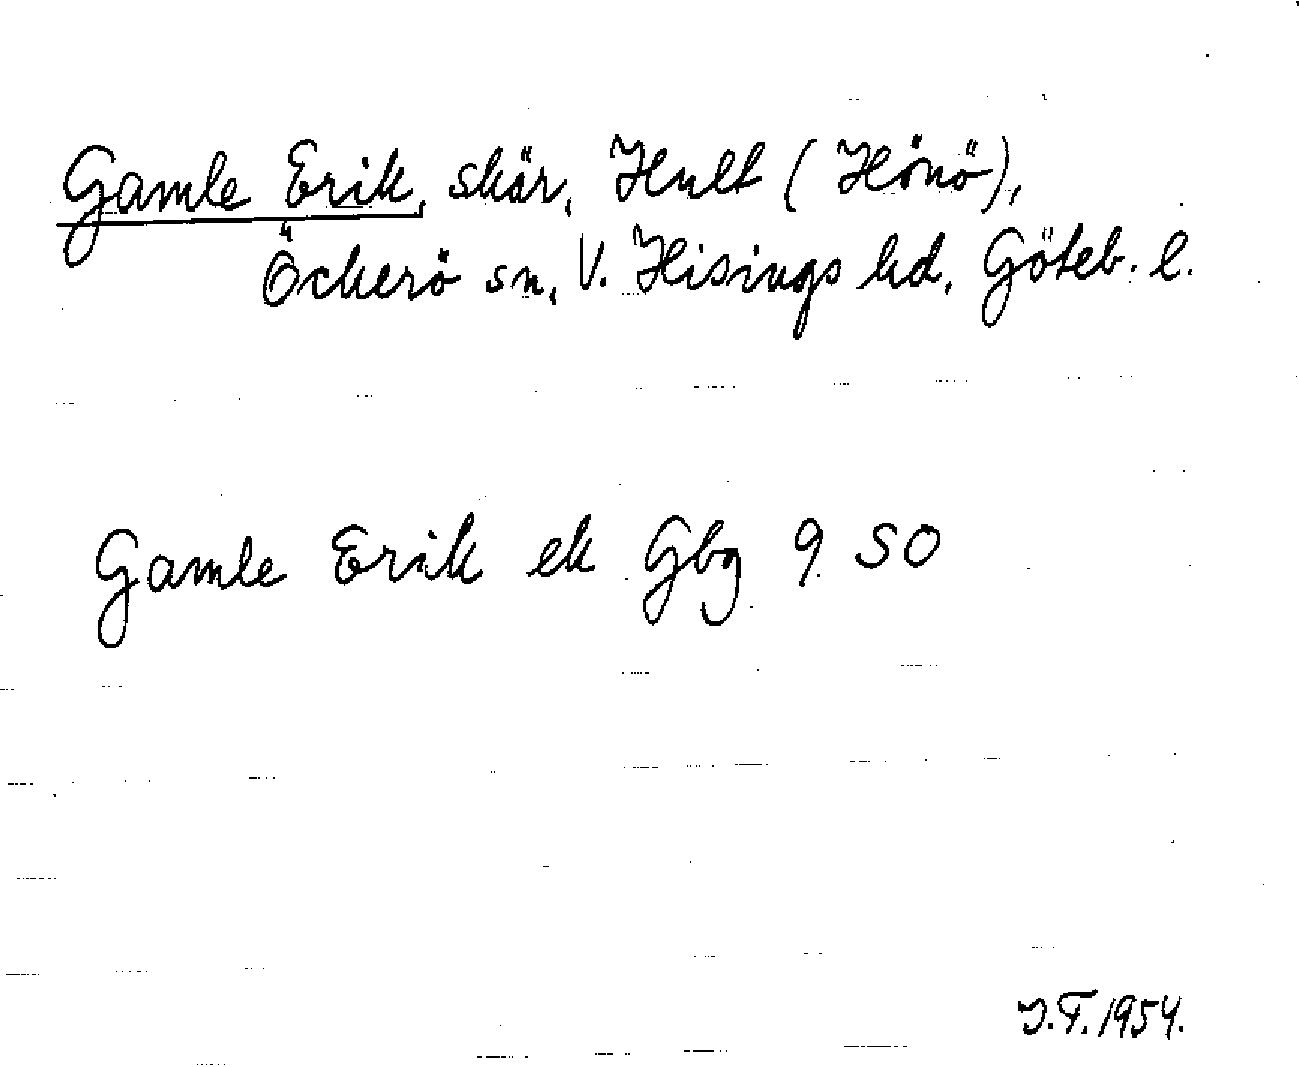 Gamle Erik, skär, Hult (Hönö),
Öckerö sn, V. Hisings hd, Göteb. l.
Gamle Erik ek Gbg 9 SO
J.T. 1954.